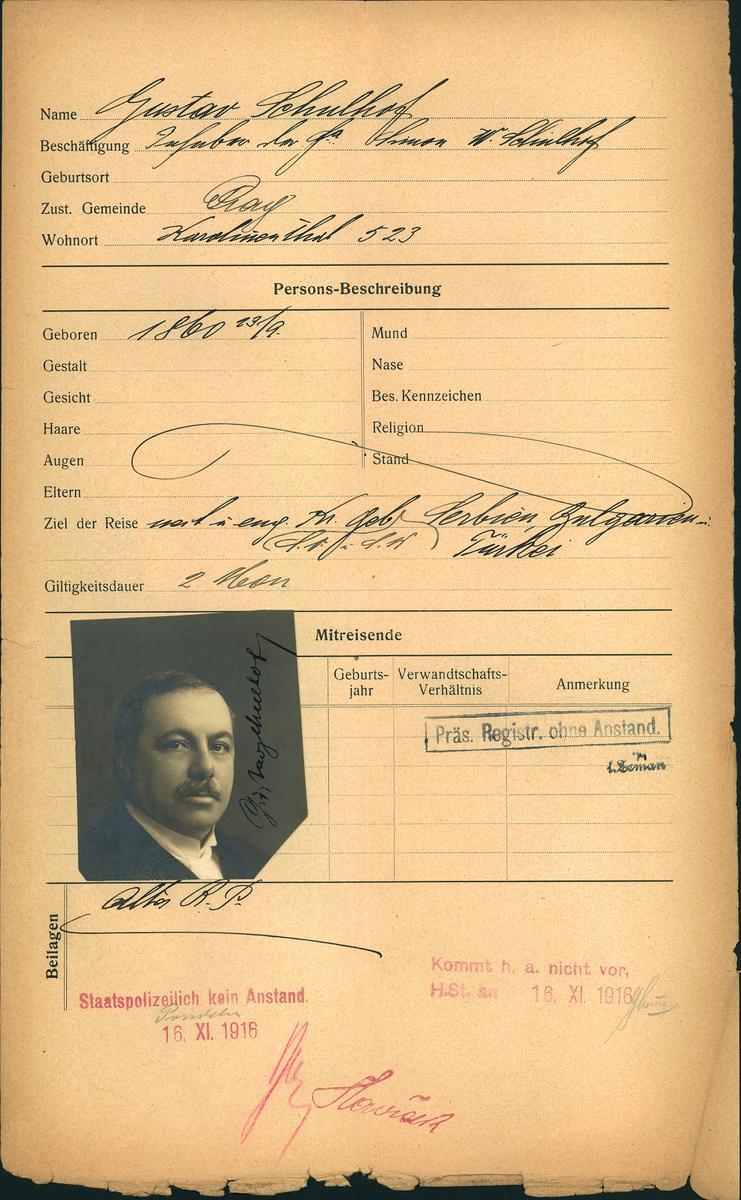 Name Gustav Schulhof
Beschäftigung Inhaber der Fa Simon W. Schulhof
Geburtsort
Zust. Gemeinde Prag
Wohnort Karolinenthal 523
Persons-Beschreibung
Geboren 1860 23/9.
Mund
Gestalt
Nase
Gesicht
Bes. Kennzeichen
Haare
Religion
Augen
Stand
Eltern
Ziel der Reise u eng. Kr. geb Serbien, Bulgarien u.
Türkei
Giltigkeitsdauer 2 Mon
Mitreisende
Geburts-
jahr
Verwandtschafts-
Verhältnis
Anmerkung
Gustav Schulhof
Präs. Registr. ohne Anstand.
Beilagen
alter R. P.
Staatspolizeilich kein Anstand.
16. XI. 1916
Kommt h. a. nicht vor,
H.St. am 16. XI. 1916